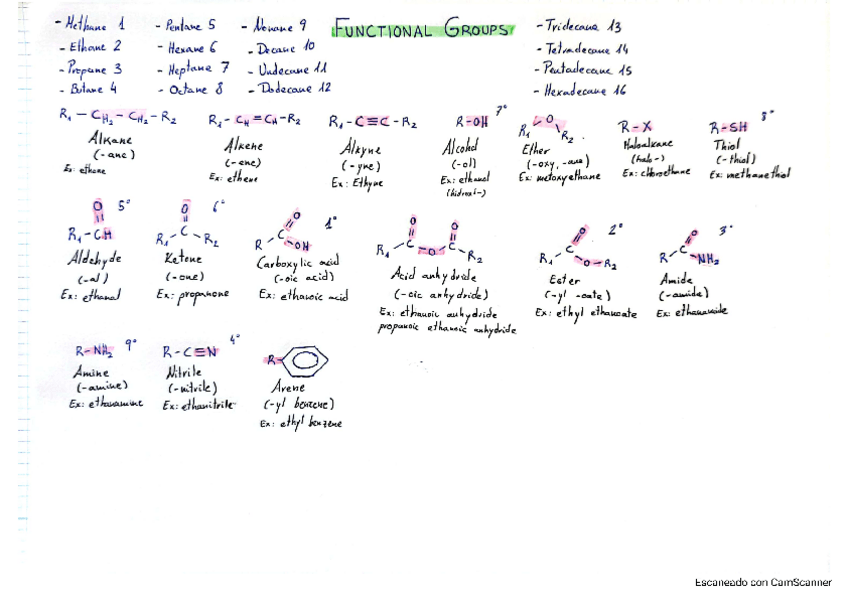 - Methane 1
- Ethane 2
- Propane 3
- Butane 4
- Pentane 5
- Hexane 6
- Heptane 7
- Octane 8
- Nonane 9
- Decane 10
- Undecane 11
- Dodecane 12
FUNCTIONAL GROUPS
- Tridecane 13
- Tetradecane 14
- Pentadecane 15
- Hexadecane 16
R₁ - CH₂ - CH₂ - R₂
Alkane
(-ane)
Ex: ethane
R₁ - CH = CH - R₂
Alkene
(-ene)
Ex: ethene
R₁ - C≡C - R₂
Alkyne
(-yne)
Ex: Ethyne
R-OH 7°
Alcohol
(-ol)
Ex: ethanol
(hidroxi-)
R₁ O R₂
Ether
(-oxy, -ane)
Ex: metoxyethane
R-X
Haloalkane
(halo-)
Ex: chloroethane
R-SH 8°
Thiol
(-thiol)
Ex: methanethiol
O 5°
R₁-CH
Aldehyde
(-al)
Ex: ethanal
O 6°
R₁ C R₂
Ketone
(-one)
Ex: propanone
O 1°
R C OH
Carboxylic acid
(-oic acid)
Ex: ethanoic acid
O O
R₁ C O C R₂
Acid anhydride
(-oic anhydride)
Ex: ethanoic anhydride
propanoic ethanoic anhydride
O 2°
R₁ C O-R₂
Ester
(-yl -oate)
Ex: ethyl ethanoate
O 3°
R C NH₂
Amide
(-amide)
Ex: ethanamide
R-NH₂ 9°
Amine
(-amine)
Ex: ethanamine
R-C≡N 4°
Nitrile
(-nitrile)
Ex: ethanitrile
R-
Arene
(-yl benzene)
Ex: ethyl benzene
Escaneado con CamScanner